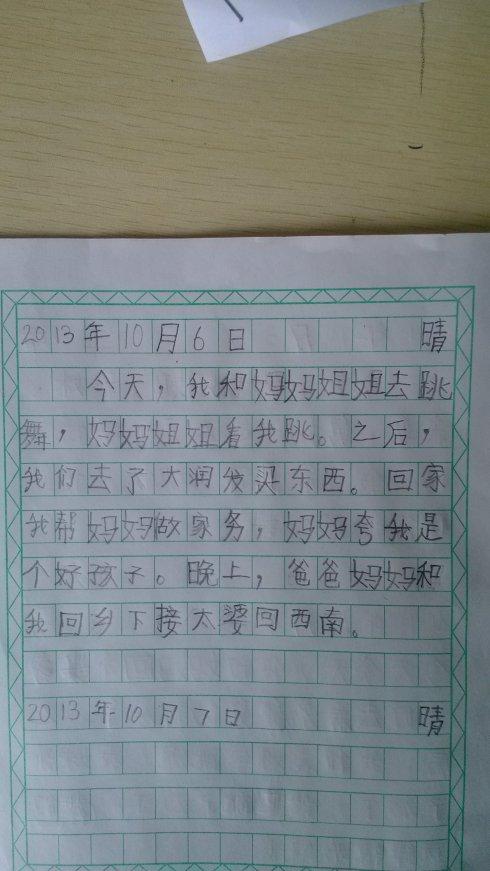 2013年10月6日 晴
今天，我和妈妈姐姐去跳
舞，妈妈姐姐看我跳。之后，
我们去了大润发买东西。回家
我帮妈妈做家务，妈妈夸我是
个好孩子。晚上，爸爸妈妈和
我回乡下接太婆回西南。
2013年10月7日 晴